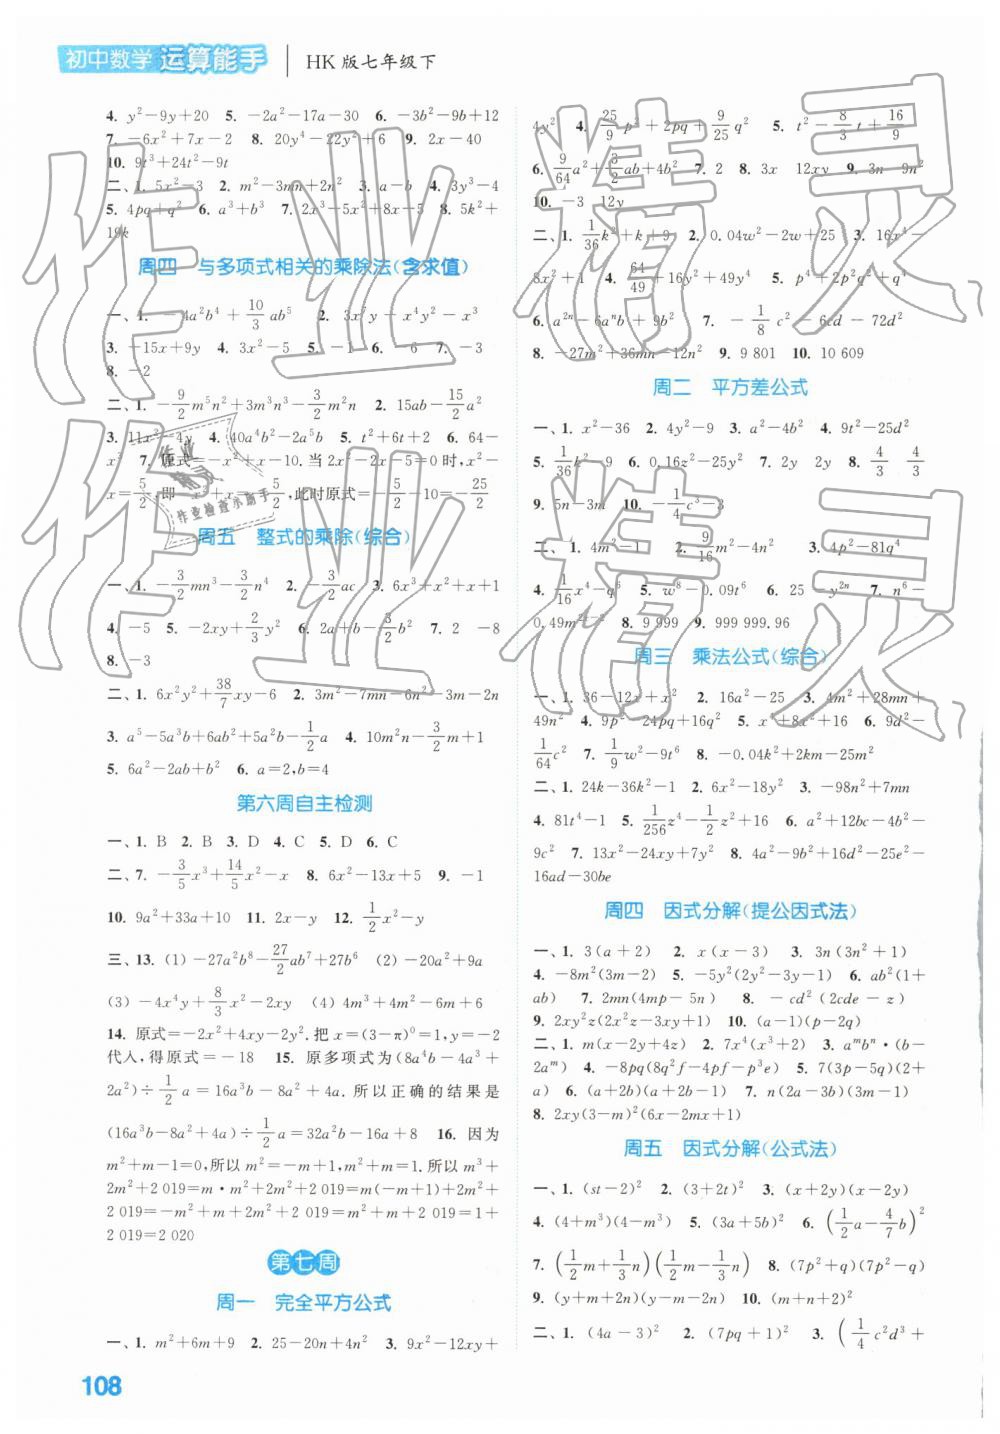 初中数学 运算能手 HK版七年级下
4. y²−9y+20 5. −2a²−17a−30 6. −3b²−9b+12
7. −6x²+7x−2 8. 20y⁴−22y²+6 9. 2x−40
10. 9t³+24t²−9t
二、1. 5x²−3 2. m²−3mn+2n² 3. a−b 4. 3y³−4
5. 4pq+q² 6. a³+b³ 7. 2x³−5x²+8x−5 8. 5k²+
19k
周四 与多项式相关的乘除法(含求值)
一、1. −4a²b⁴+10/3 ab⁵ 2. 3x⁷y−x⁴y²−x³
3. −15x+9y 4. 3x²−5 5. −1 6. −6 7. −3
8. −2
二、1. −9/2 m⁵n²+3m³n³−3/2 m²n 2. 15ab−15/2 a²
3. 11x²−4y 4. 40a⁴b²−2a⁵b 5. t²+6t+2 6. 64−
x³ 7. 原式=−x²+x−10.当2x²−2x−5=0时,x²−
x=5/2,即−x²+x=−5/2,此时原式=−5/2−10=−25/2
周五 整式的乘除(综合)
一、1. −3/2 mn³−3/2 n⁴ 2. −3/2 ac 3. 6x³+x²+x+1
4. −5 5. −2xy+2/3 y² 6. 2a+b−3/2 b² 7. 2 −8
8. −3
二、1. 6x²y²+38/7 xy−6 2. 3m²−7mn−6n²−3m−2n
3. a⁵−5a³b+6ab²+5a²b−1/2 a 4. 10m²n−3/2 m+1
5. 6a²−2ab+b² 6. a=2,b=4
第六周自主检测
一、1. B 2. B 3. D 4. C 5. D 6. C
二、7. −3/5 x³+14/5 x²−x 8. 6x²−13x+5 9. −1
10. 9a²+33a+10 11. 2x−y 12. 1/2 x²−y
三、13. (1) −27a²b⁸−27/2 ab⁷+27b⁶ (2) −20a²+9a
(3) −4x⁴y+8/3 x²−2xy (4) 4m³+4m²−6m+6
14. 原式=−2x²+4xy−2y².把x=(3−π)⁰=1,y=−2
代入,得原式=−18 15. 原多项式为(8a⁴b−4a³+
2a²)÷1/2 a=16a³b−8a²+4a.所以正确的结果是
(16a³b−8a²+4a)÷1/2 a=32a²b−16a+8 16. 因为
m²+m−1=0,所以m²=−m+1,m²+m=1.所以m³+
2m²+2 019=m·m²+2m²+2 019=m(−m+1)+2m²+
2 019=−m²+m+2m²+2 019=m²+m+2 019=1+
2 019=2 020
第七周
周一 完全平方公式
一、1. m²+6m+9 2. 25−20n+4n² 3. 9x²−12xy+
4y² 4. 25/9 p²+2pq+9/25 q² 5. t²−8/3 t+16/9
6. 9/64 a²+3/2 ab+4b² 7. 2 8. 3x 12xy 9. 3n 9n²
10. −3 12y
二、1. 1/36 k²+k+9 2. 0.04w²−2w+25 3. 16x⁴−
8x²+1 4. 64/49 x²+16xy²+49y⁴ 5. p⁴+2p²q²+q⁴
6. a²ⁿ−6aⁿb+9b² 7. −1/8 c²−6cd−72d²
8. −27m²+36mn−12n² 9. 9 801 10. 10 609
周二 平方差公式
一、1. x²−36 2. 4y²−9 3. a²−4b² 4. 9t²−25d²
5. 1/36 k²−9 6. 0.16z²−25y² 7. 2y 2y 8. 4/3 4/3
9. 5n−3m 10. −1/4 c³−3
二、1. 4m²−1 2. 9/16 m²−4n² 3. 4p²−81q⁴
4. 1/16 x⁴−q⁶ 5. w⁸−0.09t⁶ 6. 25−y²ⁿ 7. n⁶−
8. 9 999 9. 999 999.96
周三 乘法公式(综合)
一、1. 36−12x+x² 2. 16a²−25 3. 4m²+28mn+
49n² 4. 9p²−24pq+16q² 5. x⁴+8x²+16 6. 9d²−
1/64 c² 7. 1/9 w²−9t⁶ 8. −0.04k²+2km−25m²
二、1. 24k−36k²−1 2. 6x²−18y² 3. −98n²+7mn
4. 81t⁴−1 5. 1/256 z⁴−1/2 z²+16 6. a²+12bc−4b²−
9c² 7. 13x²−24xy+7y² 8. 4a²−9b²+16d²−25e²−
16ad−30be
周四 因式分解(提公因式法)
一、1. 3(a+2) 2. x(x−3) 3. 3n(3n²+1)
4. −8m²(3m−2) 5. −5y²(2y²−3y−1) 6. ab²(1+
ab) 7. 2mn(4mp−5n) 8. −cd²(2cde−z)
9. 2xy²z(2x²z−3xy+1) 10. (a−1)(p−2q)
二、1. m(x−2y+4z) 2. 7x⁴(x³+2) 3. aᵐbⁿ·(b−
2aᵐ) 4. −8pq(8q²f−4pf−p³e) 5. 7(3p−5q)(2+
a) 6. (a+2b)(a+2b−1) 7. n(2a−b)(3m−1)
8. 2xy(3−m)²(6x−2mx+1)
周五 因式分解(公式法)
一、1. (st−2)² 2. (3+2t)² 3. (x+2y)(x−2y)
4. (4+m³)(4−m³) 5. (3a+5b)² 6. (1/2 a−4/7 b)²
7. (1/2 m+1/3 n)(1/2 m−1/3 n) 8. (7p²+q)(7p²−q)
9. (y+m+2n)(y−m−2n) 10. (m+n+2)²
二、1. (4a−3)² 2. (7pq+1)² 3. (1/4 c²d³+
108
作业精灵
作业精灵
作业
作业检查小助手